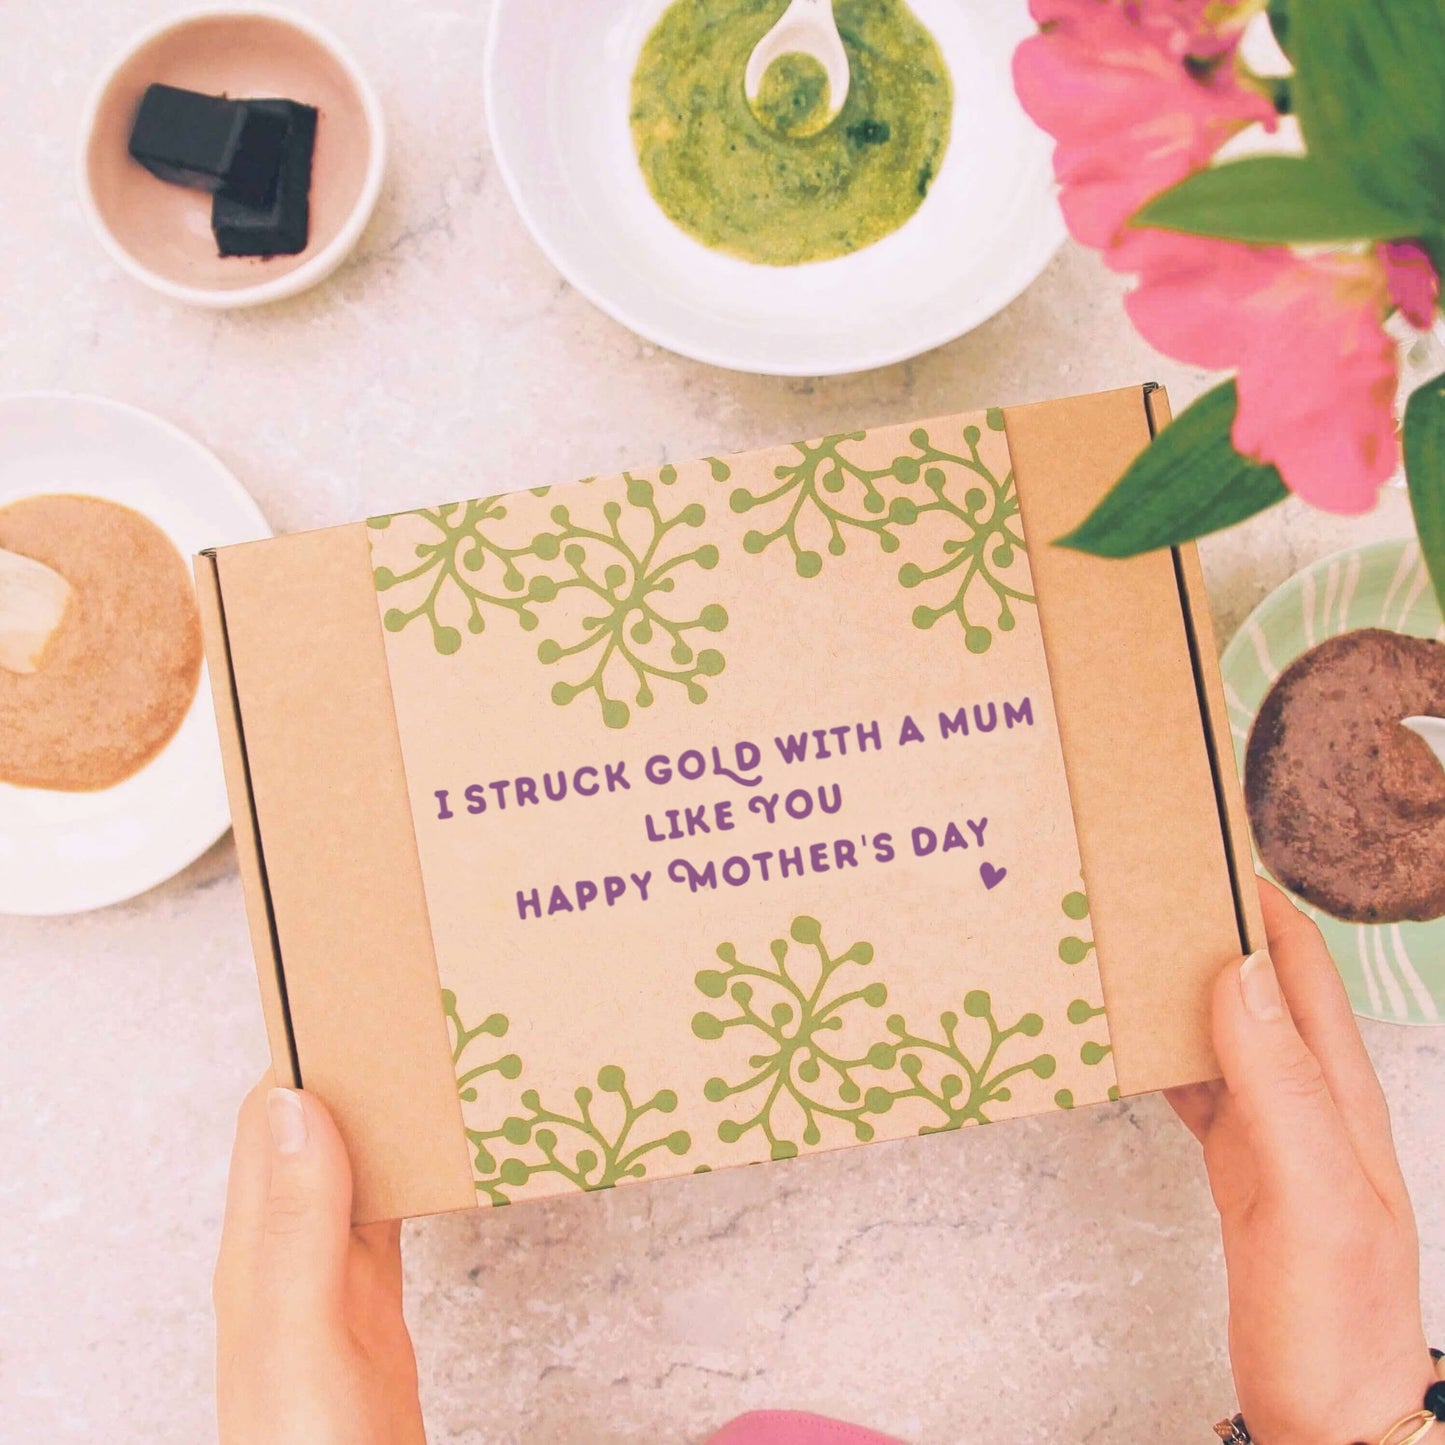 I STRUCK GOLD WITH A MUM
LIKE YOU
HAPPY MOTHER'S DAY